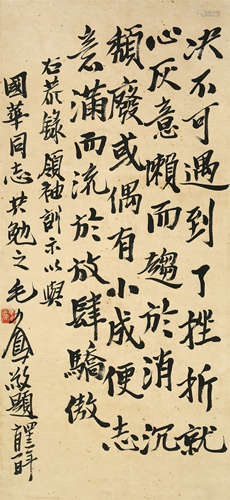 决不可遇到了挫折就
心灰意懒而趋於消沉
颓废或偶有小成便志
意满而流於放肆骄傲
右恭录领袖训示以与
国华同志共勉之 毛
敬题